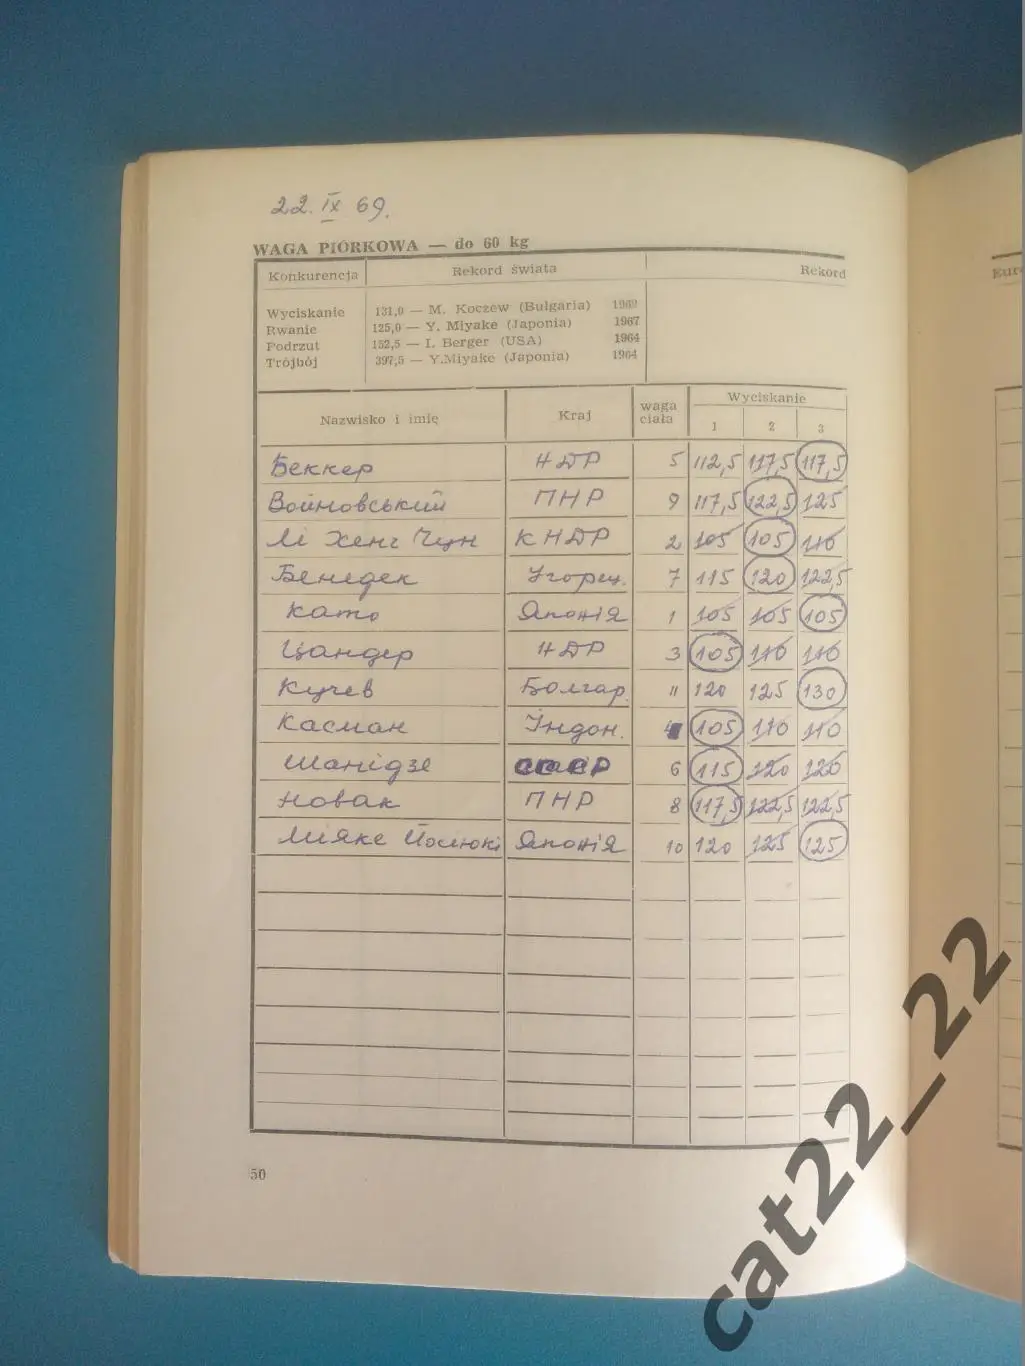 22. IX 69.
WAGA PIÓRKOWA — do 60 kg
Konkurencja Rekord świata Rekord
Wyciskanie 131,0 — M. Koczew (Bulgaria) 1969
Rwanie 125,0 — Y. Miyake (Japonia) 1967
Podrzut 152,5 — I. Berger (USA) 1964
Trójbój 397,5 — Y.Miyake (Japonia) 1964
Nazwisko i imię Kraj waga ciała Wyciskanie
1 2 3
Беккер НДР 5 112,5 117,5 117,5
Войновський ПНР 9 117,5 122,5 125
Лі Хенг Чун КНДР 2 105 105 110
Бенедек Угорец. 7 115 120 122,5
Като Японія 1 105 105 105
Цандер НДР 3 105 110 110
Кучев Болгар. 11 120 125 130
Касман Індон. 4 105 110 110
Шанідзе СССР 6 115 120 120
Новак ПНР 8 117,5 122,5 122,5
Мияке Йосіюкі Японія 10 120 125 125
50
Euro
cat22_22